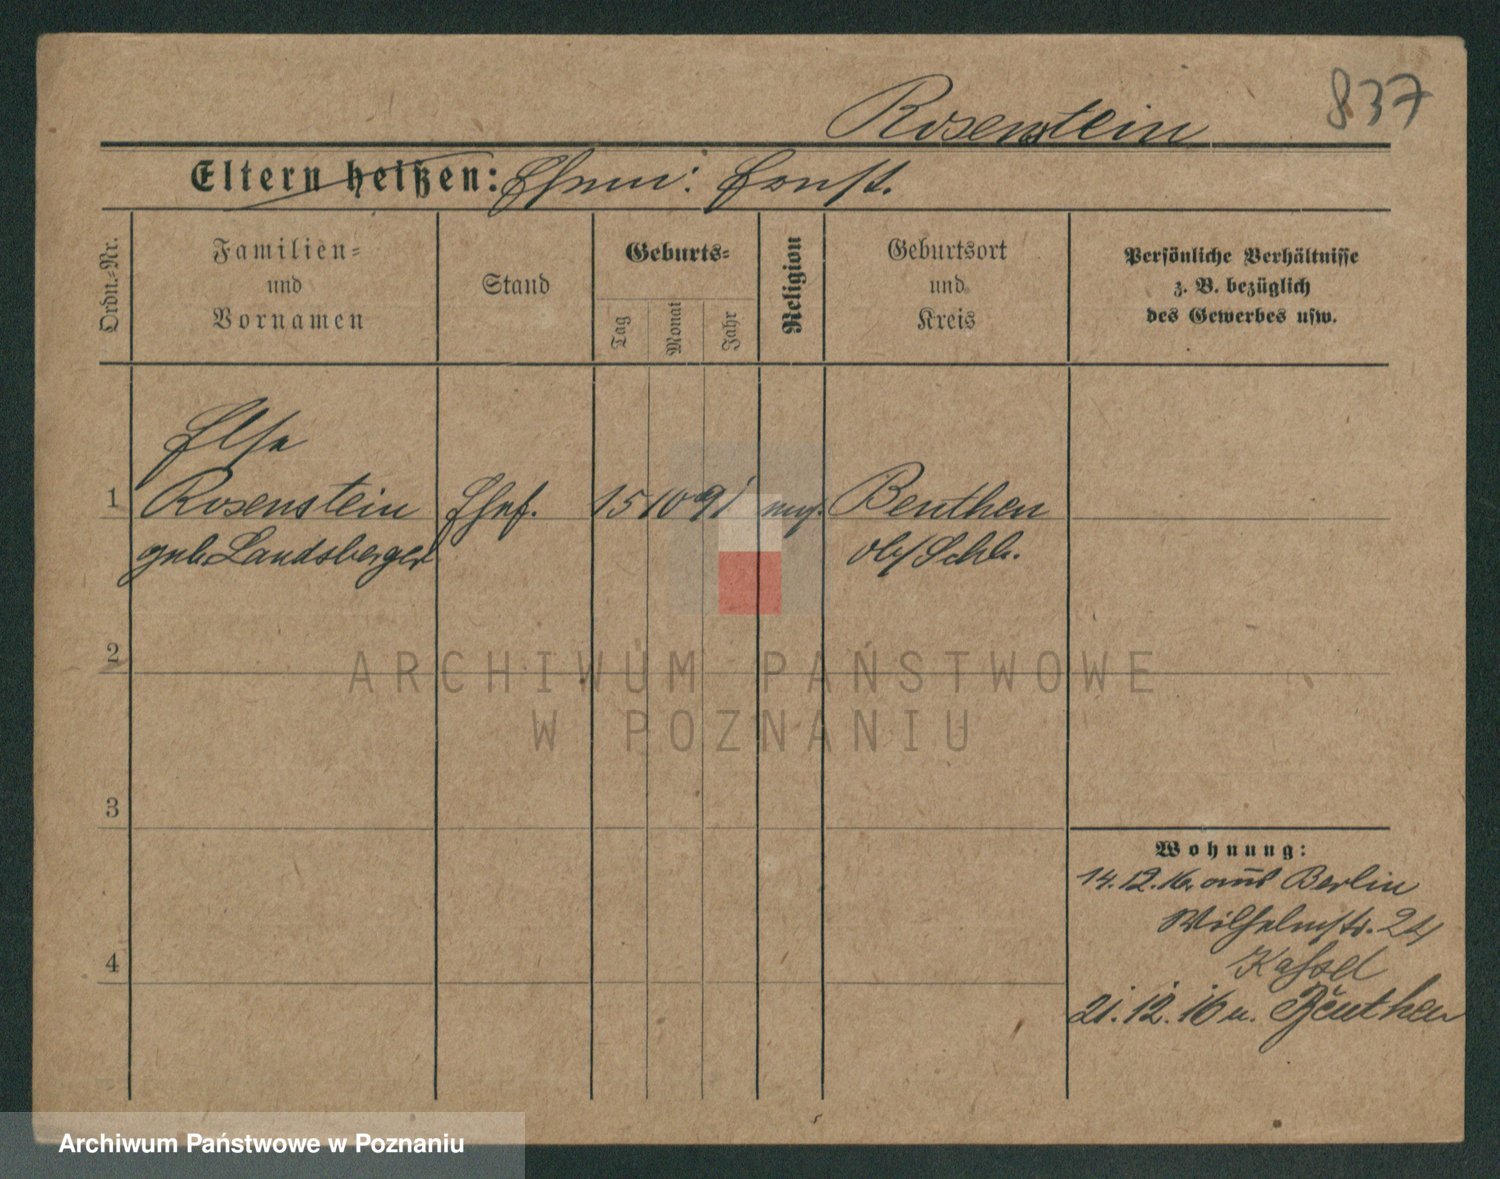 837
Rosenstein
Eltern heißen: Ehem: Ernst.
Ordn.-Nr.
Familien-
und
Vornamen
Stand
Geburts-
Tag
Monat
Jahr
Religion
Geburtsort
und
Kreis
Persönliche Verhältnisse
z. B. bezüglich
des Gewerbes usw.
Else
1 Rosenstein Ehef. 15 10 91 mos. Beuthen
geb. Landsberger Ob/Schls.
2
3
4
Wohnung:
14.12.16. aus Berlin
Wilhelmstr. 24
Kassel
21.12.16 n. Beuthen
ARCHIWUM PAŃSTWOWE
W POZNANIU
Archiwum Państwowe w Poznaniu